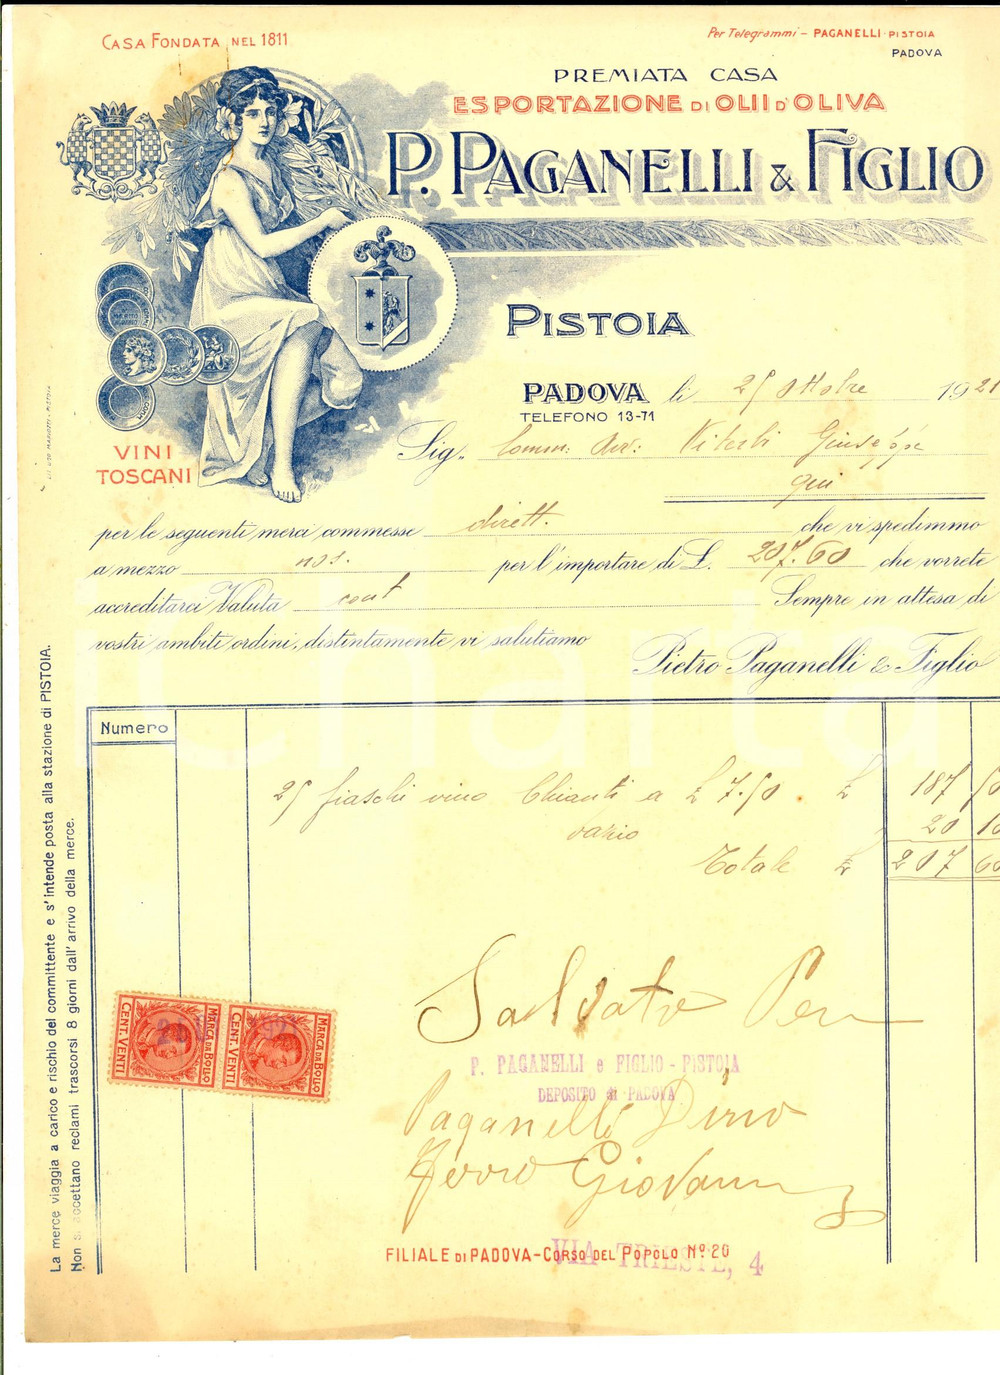 CASA FONDATA NEL 1811
Per Telegrammi - PAGANELLI - PISTOIA
PADOVA
PREMIATA CASA
ESPORTAZIONE DI OLII D'OLIVA
P. PAGANELLI & FIGLIO
PISTOIA
PADOVA li 25 Ottobre 1921
TELEFONO 13-71
VINI
TOSCANI
Sig. Comm: Avv: Viterbi Giuseppe
qui
per le seguenti merci commesse dirett. che vi spedimmo
a mezzo nos. per l'importare di L. 207.60 che vorrete
accreditarci Valuta cont Sempre in attesa di
vostri ambiti ordini, distintamente vi salutiamo
Pietro Paganelli & Figlio
Numero
25 fiaschi vino Chianti a £ 7.50 . £ 187 50
dazio 20 10
Totale £ 207 60
MARCA DA BOLLO
CENT. VENTI
MARCA DA BOLLO
CENT. VENTI
P. PAGANELLI e FIGLIO - PISTOIA
DEPOSITO di PADOVA
Paganelli Dino
Giovanni
FILIALE DI PADOVA - CORSO DEL POPOLO Nº 20
VIA TRIESTE, 4
La merce viaggia a carico e rischio del committente e s'intende posta alla stazione di PISTOIA.
Non si accettano reclami trascorsi 8 giorni dall'arrivo della merce.